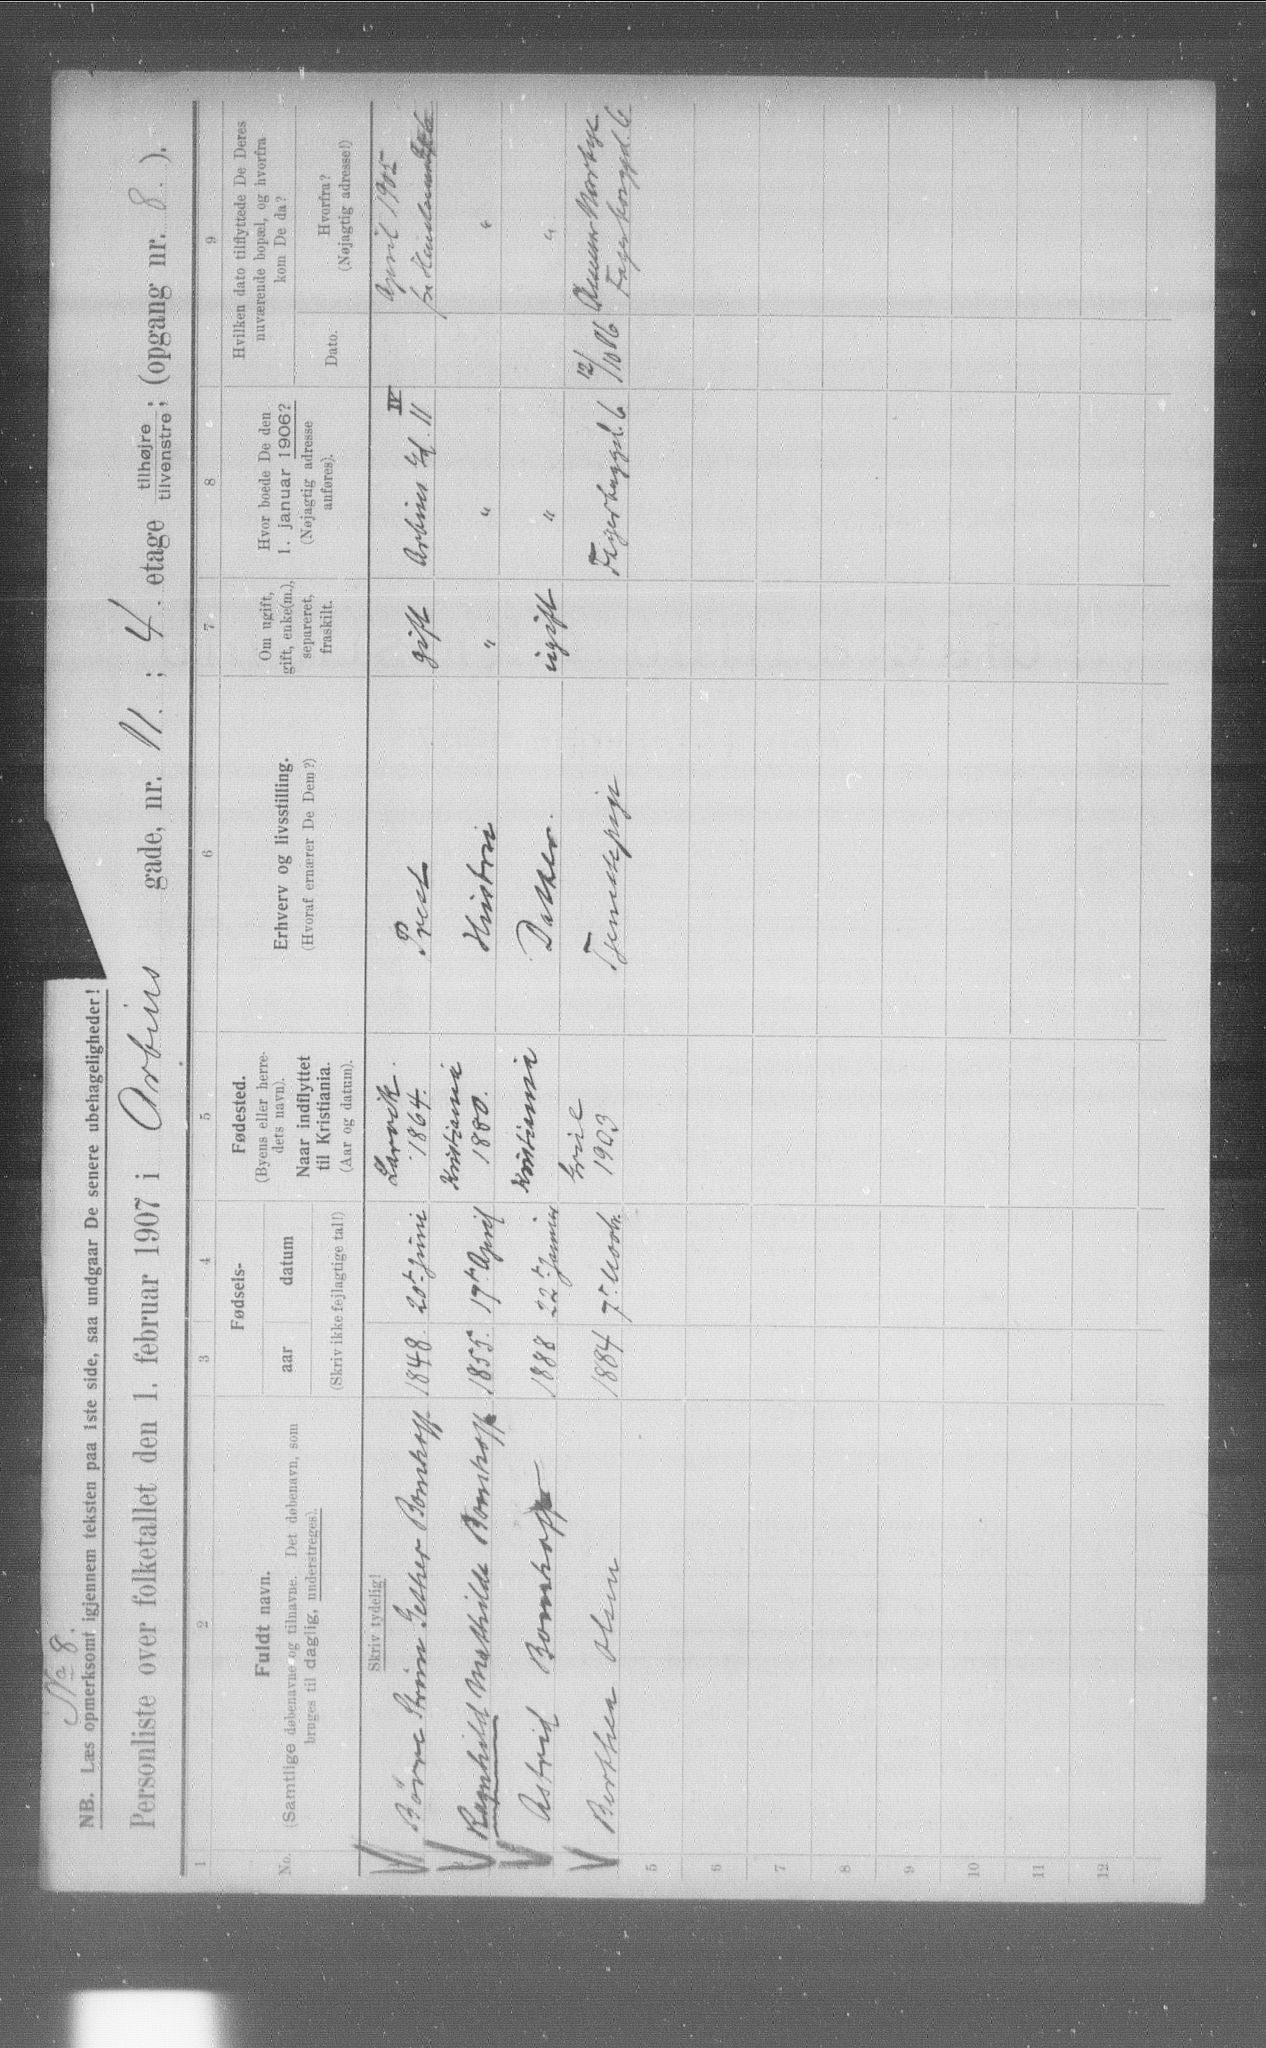 No 8.
NB. Læs opmerksomt igjennem teksten paa 1ste side, saa undgaar De senere ubehageligheder!
Personliste over folketallet den 1. februar 1907 i Arbins gade, nr. 11. ; 4. etage tilhøjre tilvenstre ; (opgang nr. 8. ).
1 2 3 4 5 6 7 8 9
No.
Fuldt navn.
(Samtlige døbenavne og tilnavne. Det døbenavn, som
bruges til daglig, understreges).
Fødsels-
aar datum
(Skriv ikke fejlagtige tal!)
Fødested.
(Byens eller herre-
dets navn).
Naar indflyttet
til Kristiania.
(Aar og datum).
Erhverv og livsstilling.
(Hvoraf ernærer De Dem?)
Om ugift,
gift, enke(m.),
separeret,
fraskilt.
Hvor boede De den
1. januar 1906?
(Nøjagtig adresse
anføres).
Hvilken dato tilflyttede De Deres
nuværende bopæl, og hvorfra
kom De da?
Dato.
Hvorfra?
(Nøjagtig adresse!)
Skriv tydelig!
Børre Strøm Bomhoff 1848. 20de juni Larvik. 1864. Prest gift Arbins Gd. 11 IV April 1905
Ragnhild Mathilde Bomhoff 1855. 17de April Kristiania 1880. Hustru " " "
Astrid Bomhoff 1888 22de Januar Kristiania Datter. ugift " "
Berthea Olsen 1884 7de Novbr. 1903 Tjenestepige 12/10 06
5
6
7
8
9
10
11
12